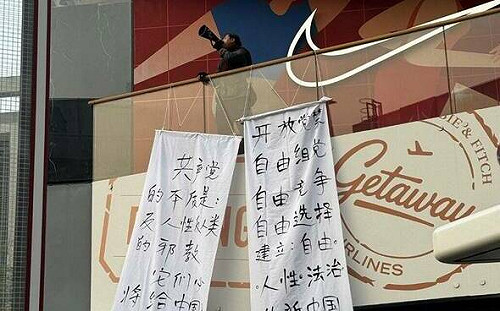 共产党
的本质是:
反人性 类
的邪教
它们
将给中国
开放党禁
自由组党
自由竞争
自由选择
建立:自由·
·人性·法治
的新中国
Getaway
RLINES
IE & FITCH